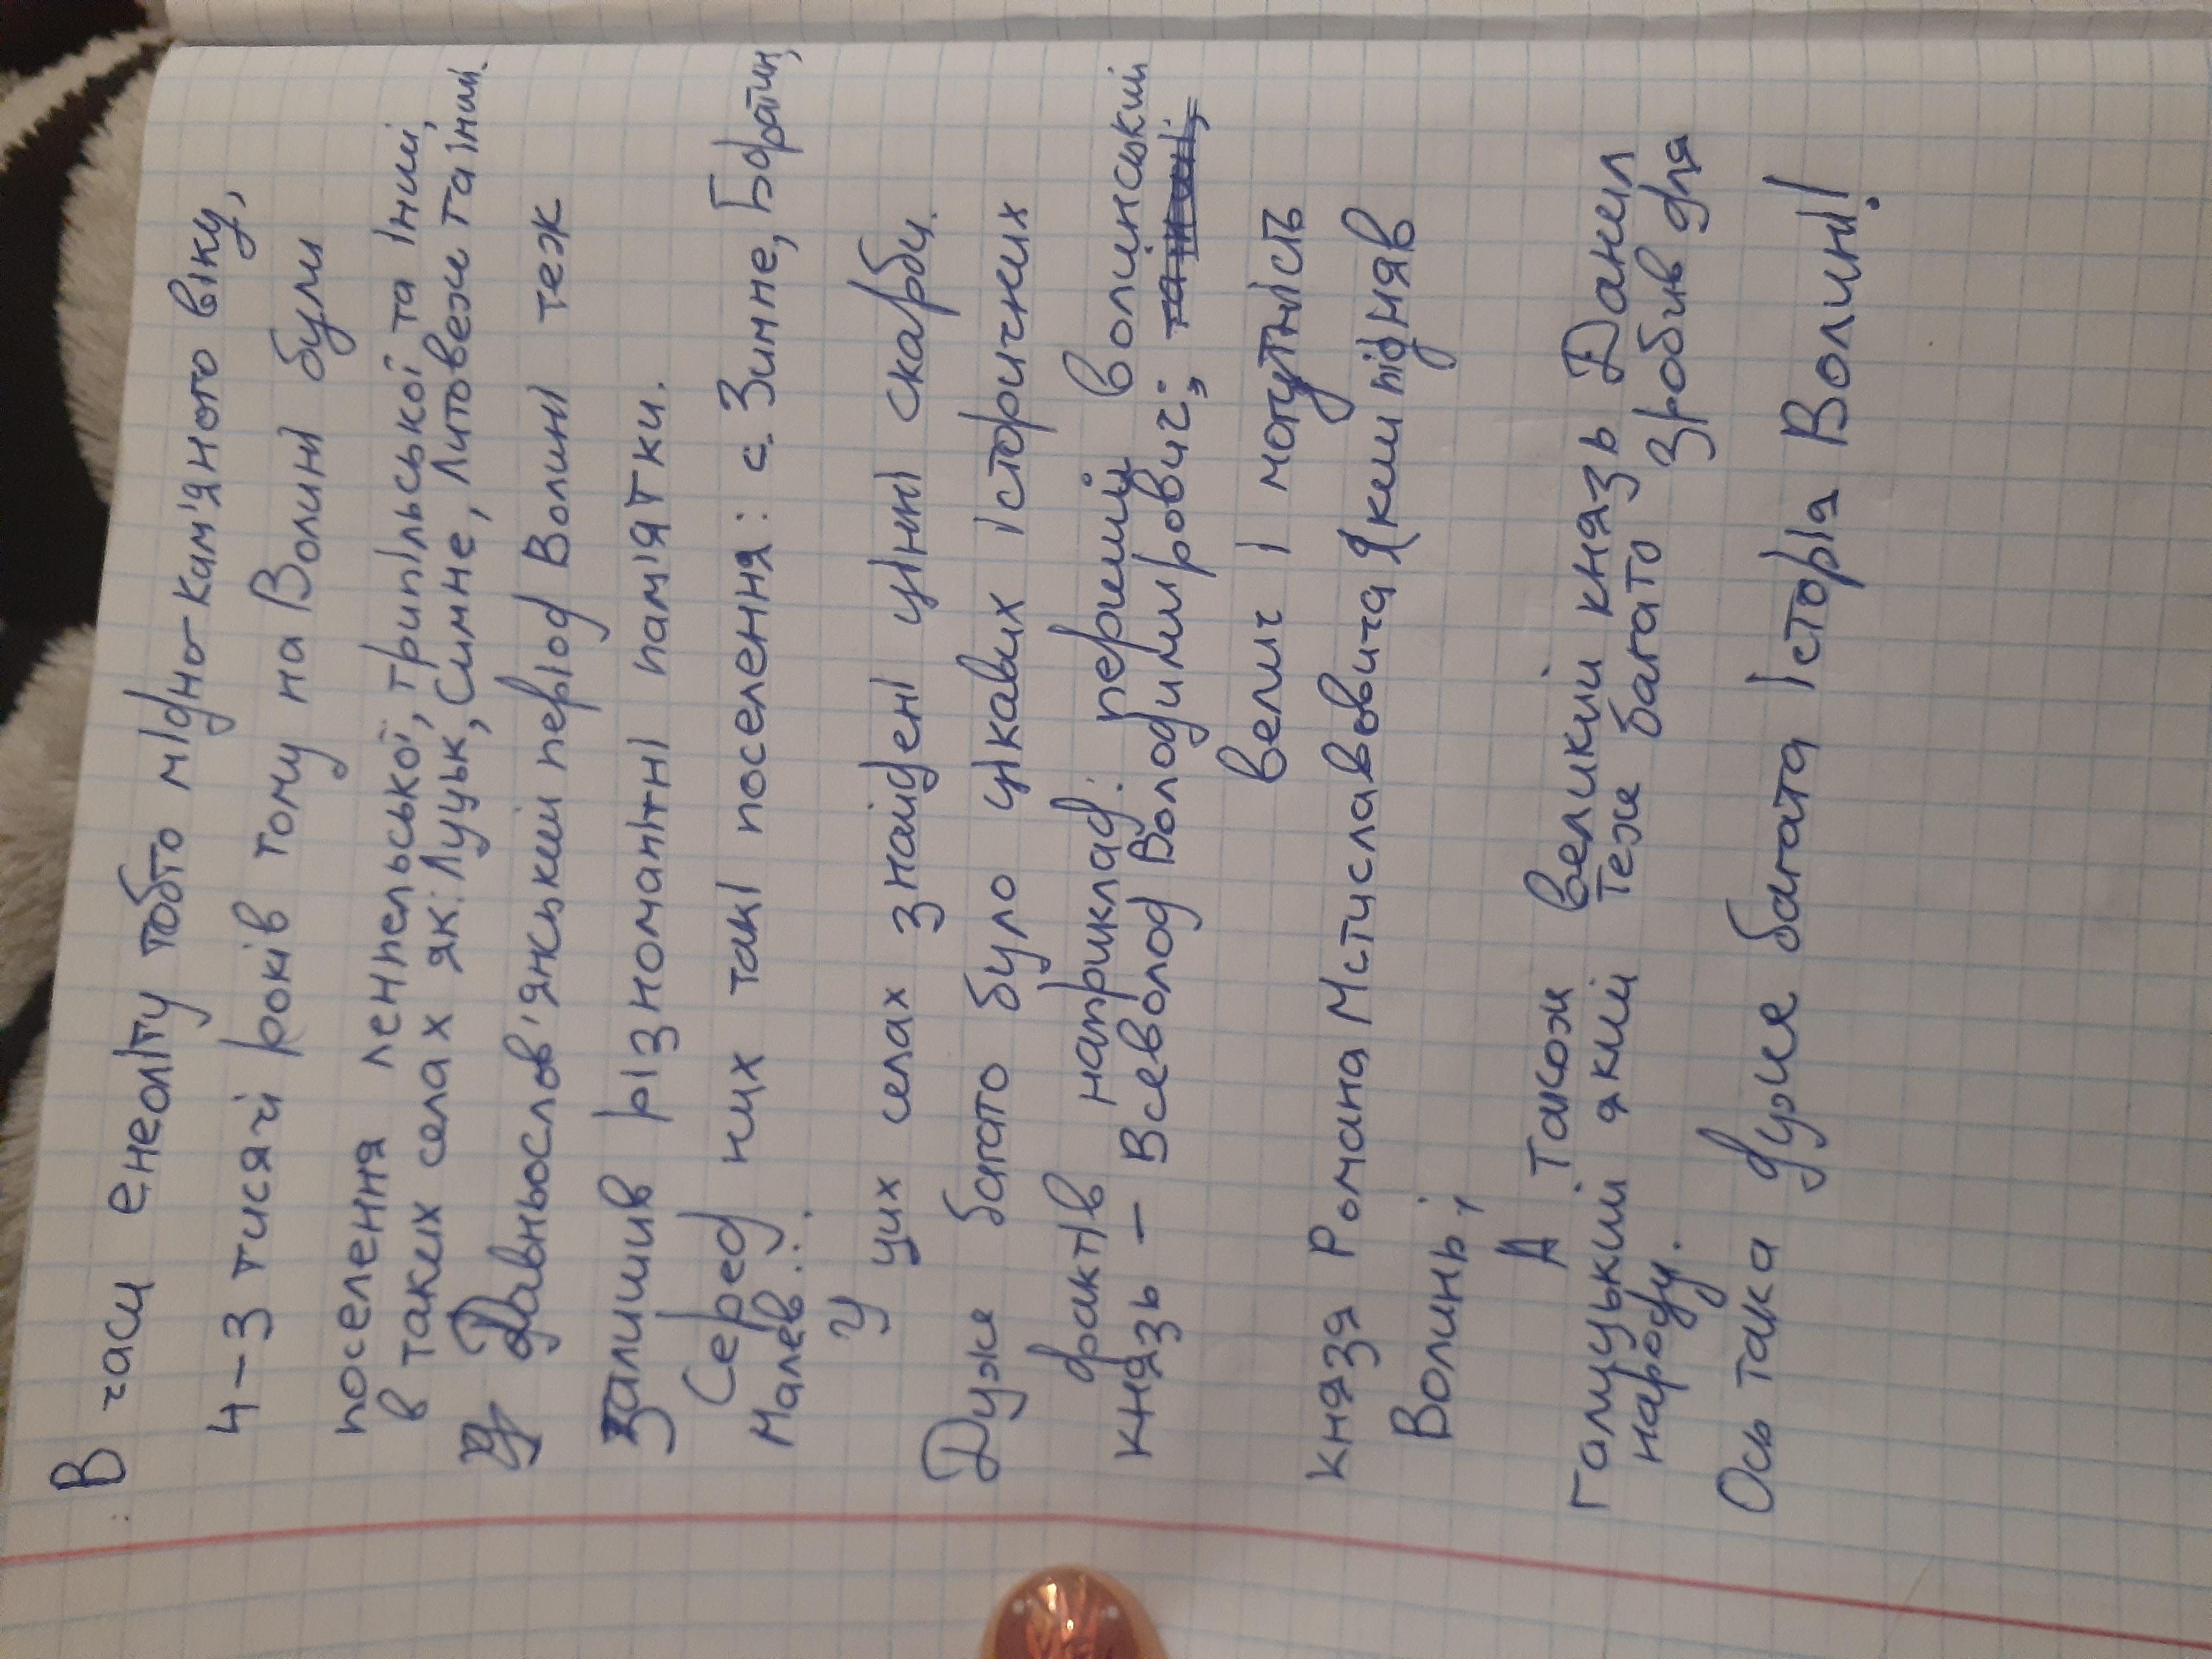 В часи енеоліту тобто мідно-кам'яного віку,
4-3 тисячі років тому на Волині були
поселення ленпельської, трипільської та інші,
в таких селах як: Луцьк, Симне, Литовеж та інши.
Давньослов'янський період Волині теж
залишив різноманітні пам'ятки.
Серед них такі поселення: с. Зимне, Боратин,
Малев..
У цих селах знайдені цінні скарби.
Дуже багато було цікавих історичних
фактів наприклад: перший волінський
князь - Всеволод Володимирович;
велич і могутність
князя Романа Мстиславовича який підняв
Волинь;
А також великий князь Данил
Галицький який теж багато зробив для
народу.
Ось така дуже багата історія Волині!